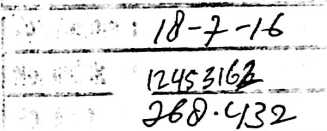 18-7-16
12453162
268.432